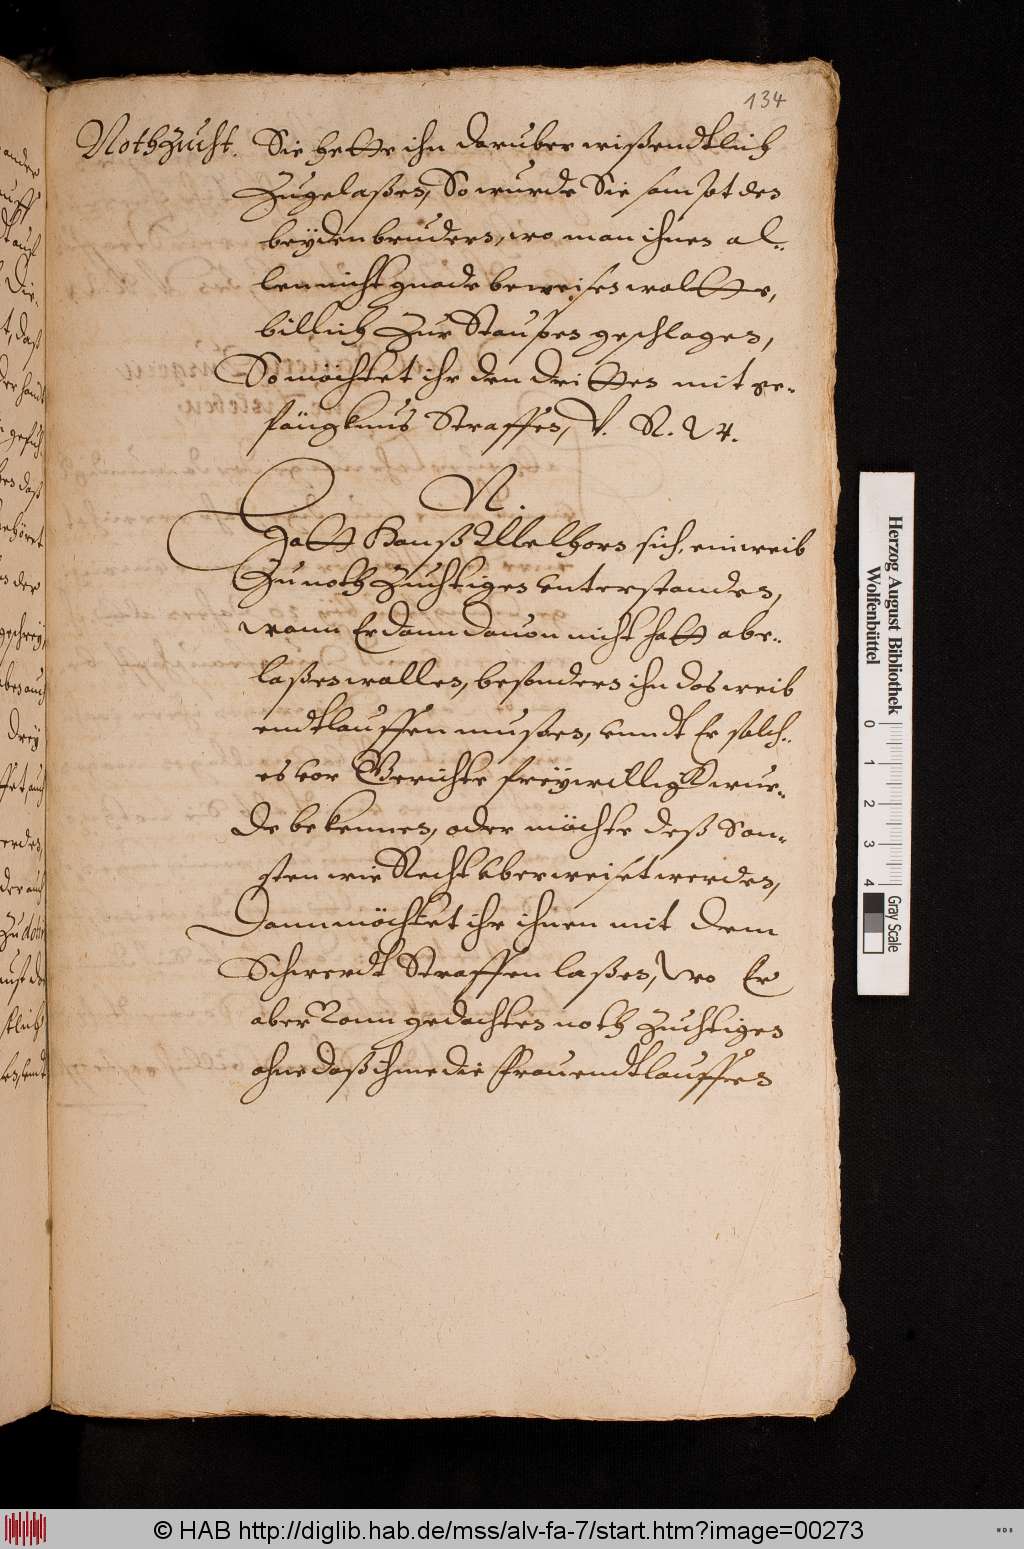 134
Nothzucht. Sie hette ihn daruber wißendtlich
Zugelaßen, So wurde Sie sampt den
beyden brudern, wo man ihnen al-
len nicht gnade beweisen woltte,
billich Zur Staupen geschlagen,
So möchtet ihr den dritten mit ge-
fängknus Straffen, V. R. W.
N.
Hatt Hanß sich, ein weib
Zu noth Zuchtigen unterstanden,
wann Er dann dauon nicht hatt abe-
laßen wollen, besondern ihn das weib
endtlauffen mußen, unndt Er solch-
es vor Gerichte freywillig wur-
de bekennen, oder möchte deß Son-
sten wie Recht uberweiset werden,
Dann möchtet ihr ihnen mit dem
Schwerdt Straffen laßen, wo Er
aber Vonn gedachten noth Zuchtigen
ohne daß ihme die Frau endtlauffen
Herzog August Bibliothek
Wolfenbüttel
0 1 2 3 4
Gray Scale
© HAB http://diglib.hab.de/mss/alv-fa-7/start.htm?image=00273